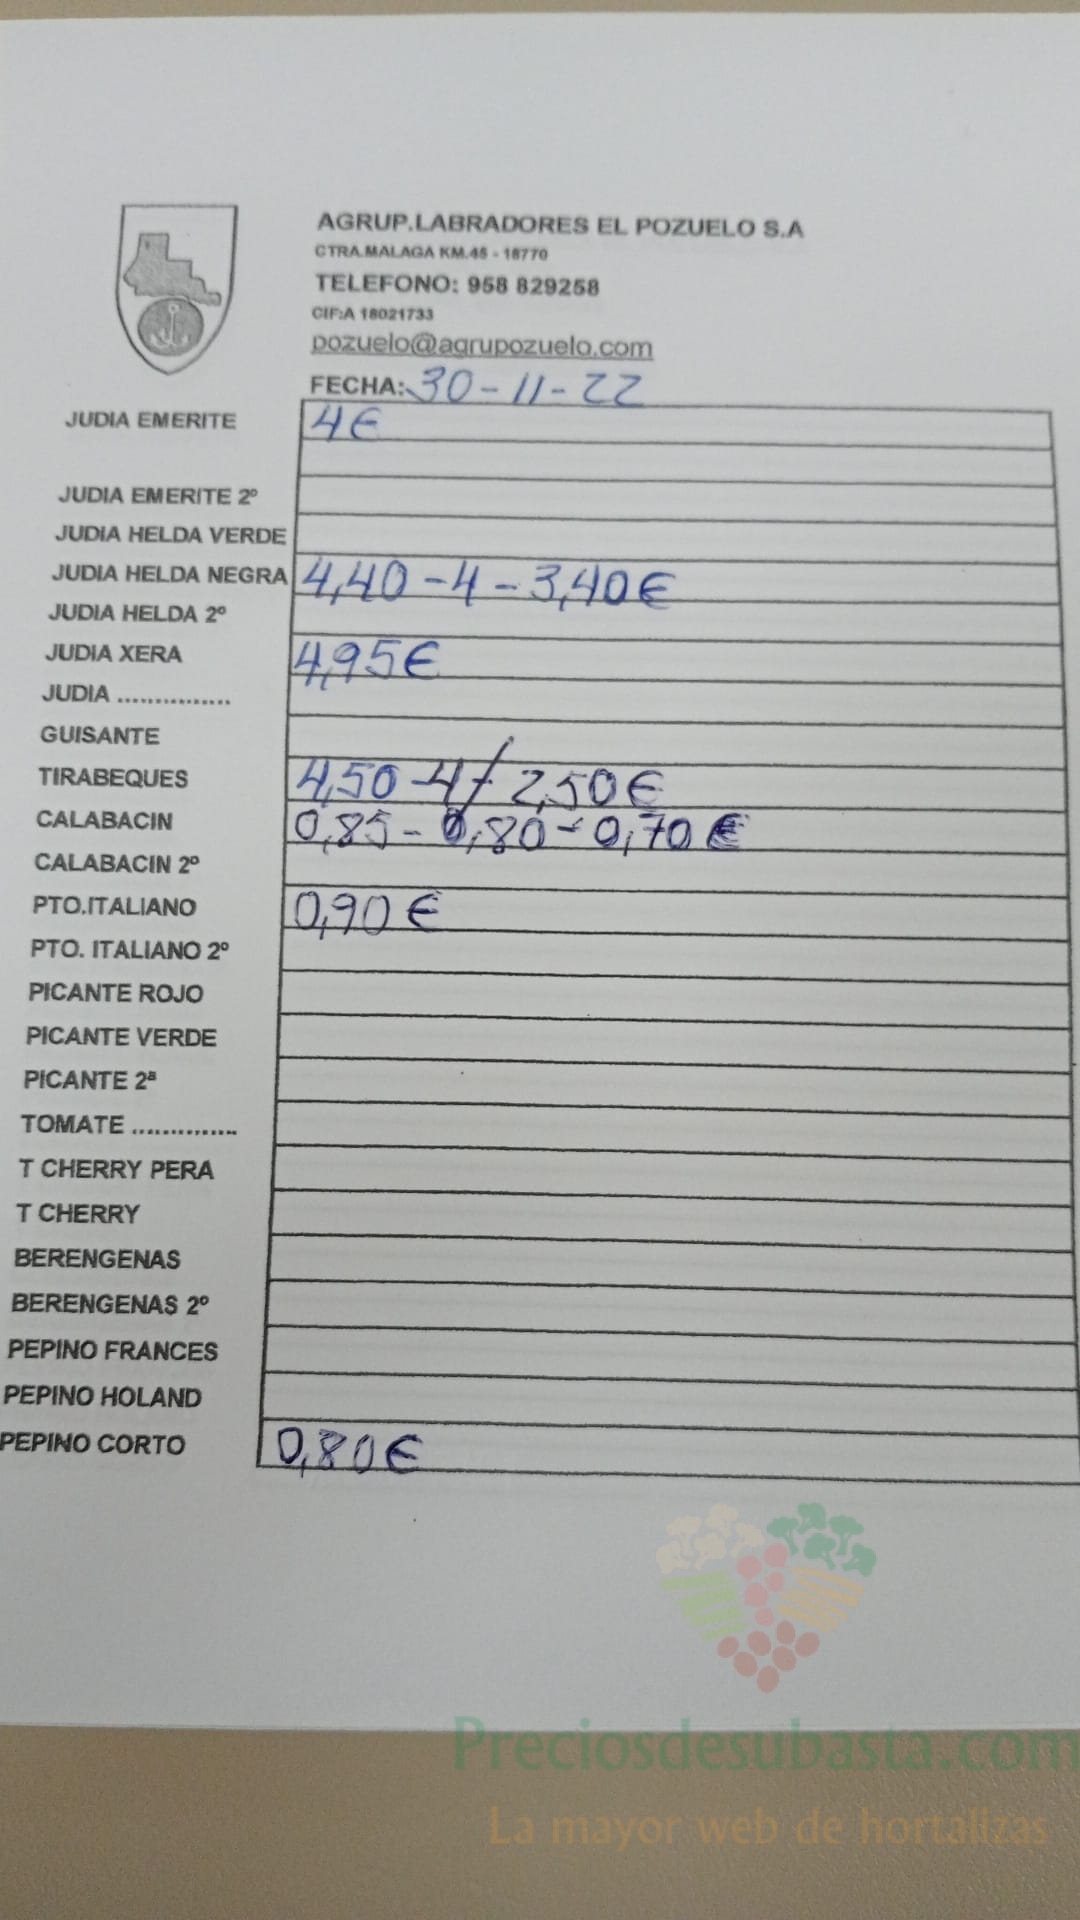 AGRUP.LABRADORES EL POZUELO S.A
CTRA.MALAGA KM.45 - 18770
TELEFONO: 958 829258
CIF:A 18021733
pozuelo@agrupozuelo.com
FECHA: 30-11-22
JUDIA EMERITE 4€
JUDIA EMERITE 2º
JUDIA HELDA VERDE
JUDIA HELDA NEGRA 4,40-4-3,40€
JUDIA HELDA 2º
JUDIA XERA 4,95€
JUDIA ...............
GUISANTE
TIRABEQUES 4,50-4/-2,50€
CALABACIN 0,85-0,80-0,70€
CALABACIN 2º
PTO.ITALIANO 0,90€
PTO. ITALIANO 2º
PICANTE ROJO
PICANTE VERDE
PICANTE 2ª
TOMATE ..............
T CHERRY PERA
T CHERRY
BERENGENAS
BERENGENAS 2º
PEPINO FRANCES
PEPINO HOLAND
PEPINO CORTO 0,80€
Preciosdesubasta.com
La mayor web de hortalizas